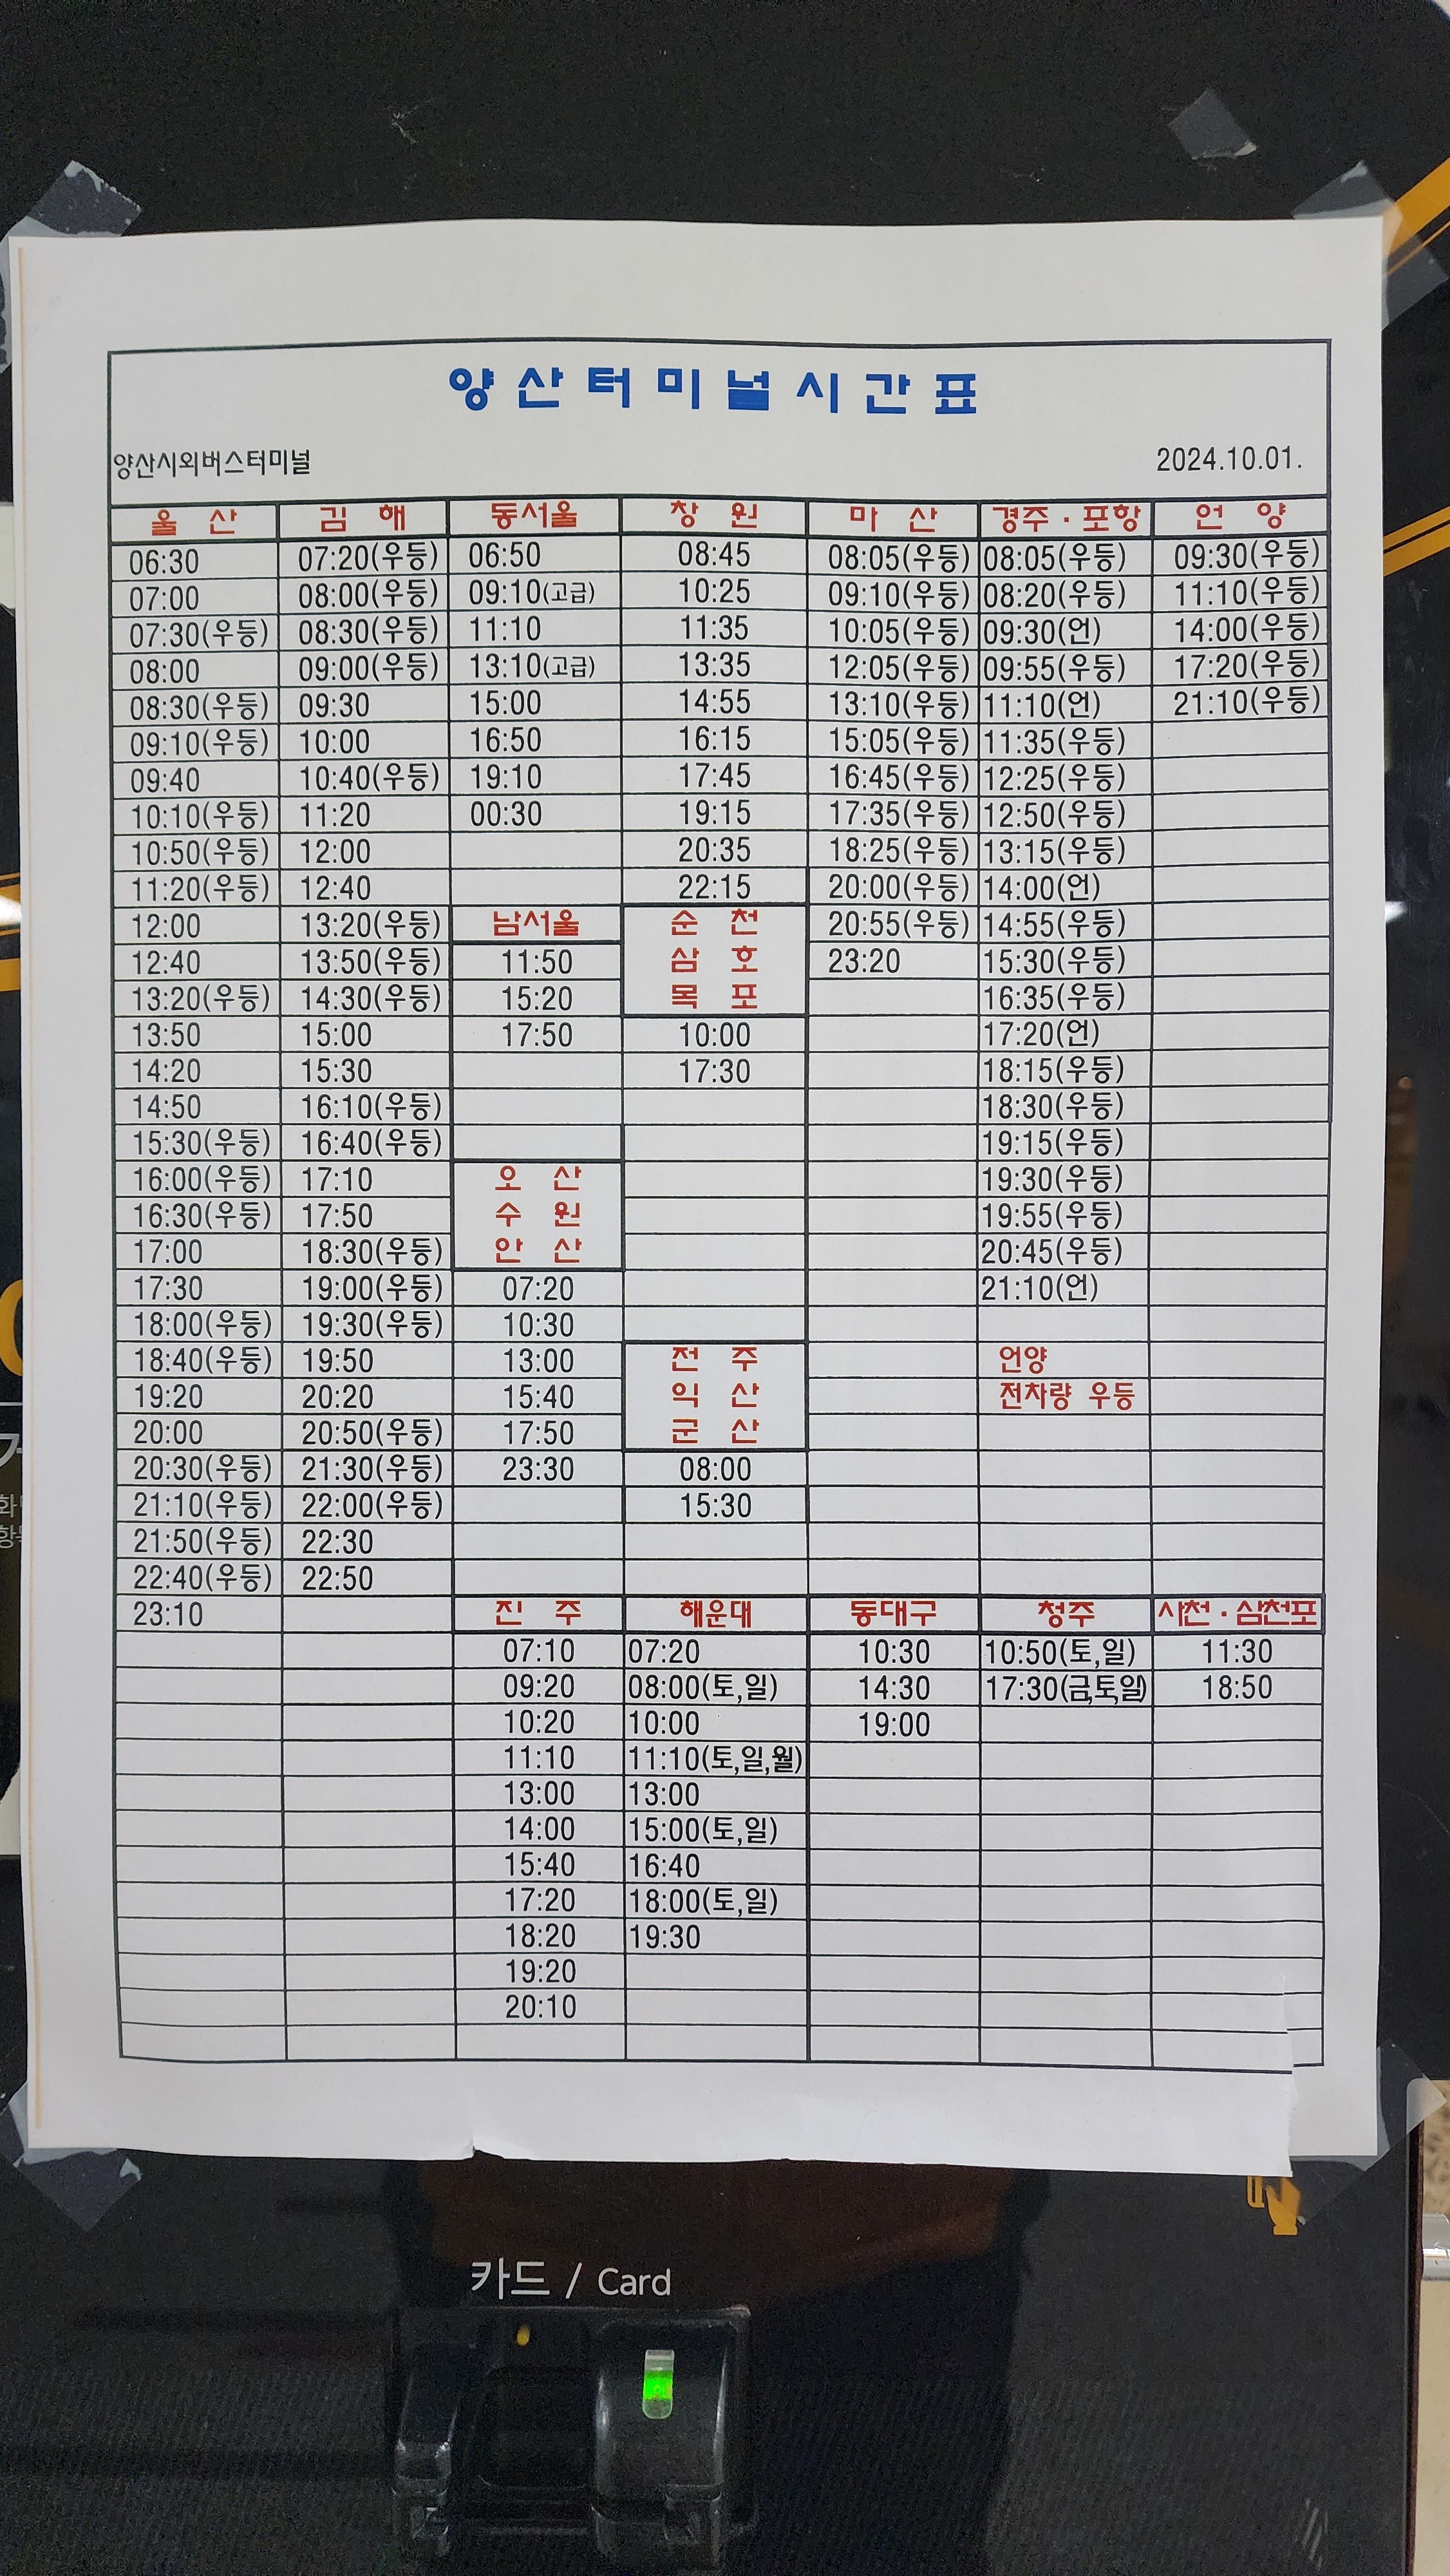 양산터미널시간표
양산시외버스터미널 2024.10.01.
울 산 김 해 동서울 창 원 마 산 경주·포항 언 양
06:30 07:20(우등) 06:50 08:45 08:05(우등) 08:05(우등) 09:30(우등)
07:00 08:00(우등) 09:10(고급) 10:25 09:10(우등) 08:20(우등) 11:10(우등)
07:30(우등) 08:30(우등) 11:10 11:35 10:05(우등) 09:30(언) 14:00(우등)
08:00 09:00(우등) 13:10(고급) 13:35 12:05(우등) 09:55(우등) 17:20(우등)
08:30(우등) 09:30 15:00 14:55 13:10(우등) 11:10(언) 21:10(우등)
09:10(우등) 10:00 16:50 16:15 15:05(우등) 11:35(우등)
09:40 10:40(우등) 19:10 17:45 16:45(우등) 12:25(우등)
10:10(우등) 11:20 00:30 19:15 17:35(우등) 12:50(우등)
10:50(우등) 12:00 20:35 18:25(우등) 13:15(우등)
11:20(우등) 12:40 22:15 20:00(우등) 14:00(언)
12:00 13:20(우등) 남서울 순 천 20:55(우등) 14:55(우등)
12:40 13:50(우등) 11:50 삼 호 23:20 15:30(우등)
13:20(우등) 14:30(우등) 15:20 목 포 16:35(우등)
13:50 15:00 17:50 10:00 17:20(언)
14:20 15:30 17:30 18:15(우등)
14:50 16:10(우등) 18:30(우등)
15:30(우등) 16:40(우등) 19:15(우등)
16:00(우등) 17:10 오 산 19:30(우등)
16:30(우등) 17:50 수 원 19:55(우등)
17:00 18:30(우등) 안 산 20:45(우등)
17:30 19:00(우등) 07:20 21:10(언)
18:00(우등) 19:30(우등) 10:30
18:40(우등) 19:50 13:00 전 주 언양
19:20 20:20 15:40 익 산 전차량 우등
20:00 20:50(우등) 17:50 군 산
20:30(우등) 21:30(우등) 23:30 08:00
21:10(우등) 22:00(우등) 15:30
21:50(우등) 22:30
22:40(우등) 22:50
23:10 진 주 해운대 동대구 청주 사천·삼천포
07:10 07:20 10:30 10:50(토,일) 11:30
09:20 08:00(토,일) 14:30 17:30(금,토,일) 18:50
10:20 10:00 19:00
11:10 11:10(토,일,월)
13:00 13:00
14:00 15:00(토,일)
15:40 16:40
17:20 18:00(토,일)
18:20 19:30
19:20
20:10
카드 / Card